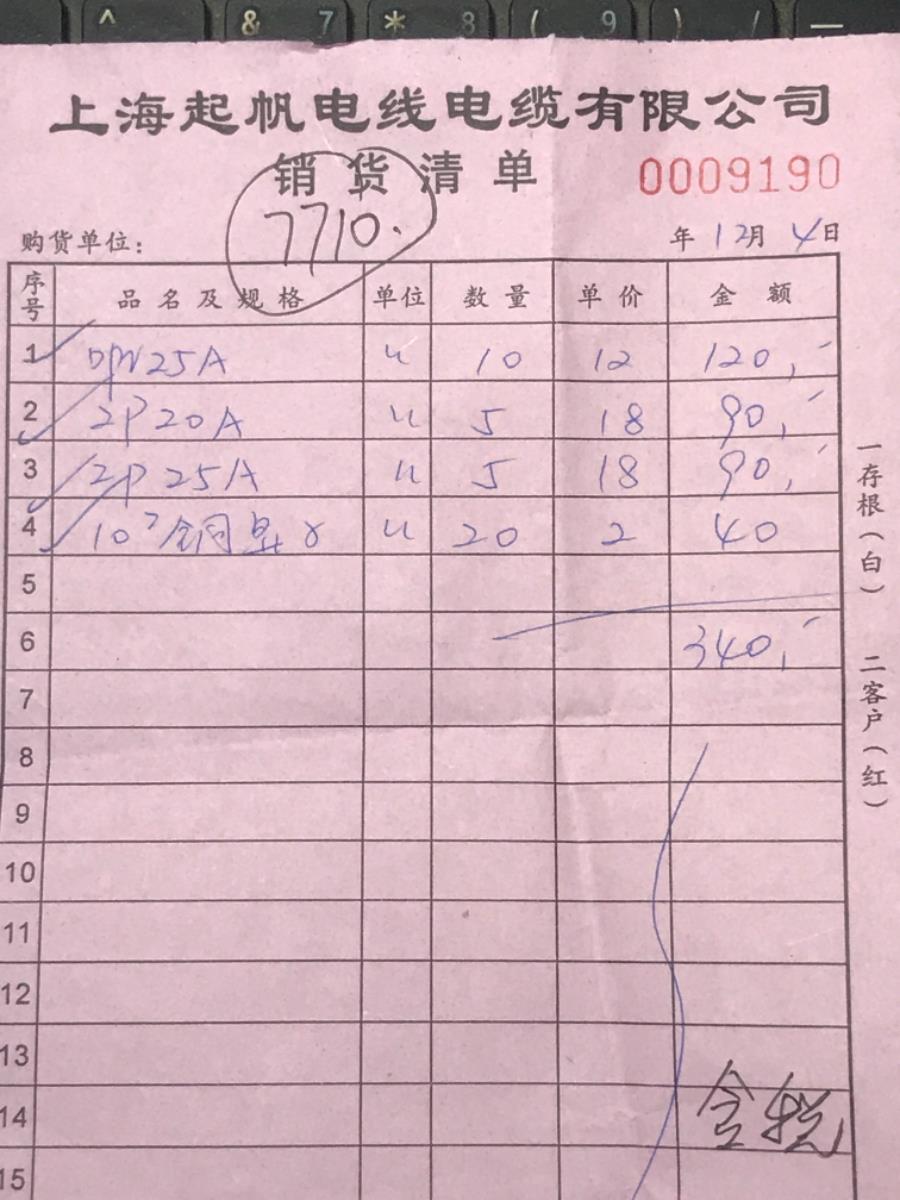 ^ & 7 * 8 ( 9 ) / —
上海起帆电线电缆有限公司
销货清单 0009190
7710.
购货单位： 年 12月 4日
序号 品名及规格 单位 数量 单价 金额
1 DPN25A 10 12 120,-
2 2P 20A 5 18 90,-
3 2P 25A 5 18 90,-
4 20 2 40
5
6 340,-
7
8
9
10
11
12
13
14 含税
15
一存根（白） 二客户（红）